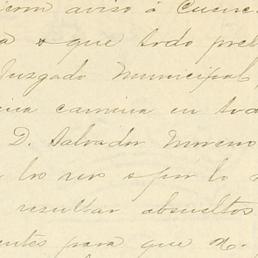 con aviso á Cuenc
a o que todo pret
Juzgado Municipal,
una carrera en toda
D. Salvador Moreno
los reos o por lo
resultar absueltos
entes para que N.